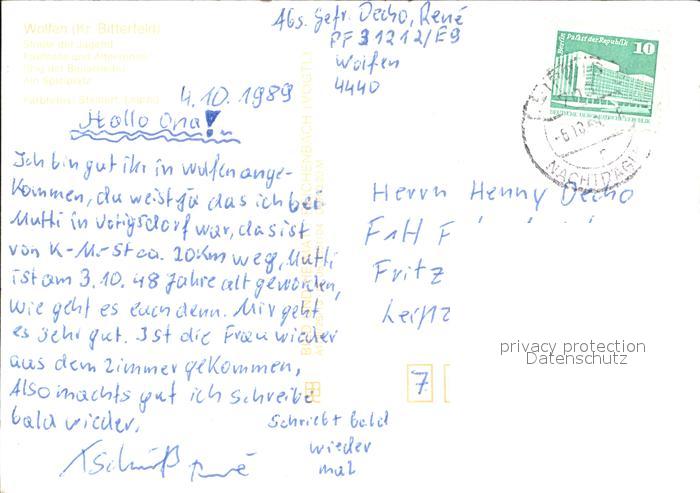 Wolfen (Kr. Bitterfeld)
Straße der Jugend
Ring der Bauarbeiter
Am Spielplatz
Farbfotos: Steinert, Leipzig
Abs. Gefr. Decho, René
PF 31212/E9
Wolfen
4440
Berlin Palast der Republik
10
DEUTSCHE DEMOKRATISCHE REPUBLIK
4.10.1989
Hallo Opa!
Ich bin gut ihr in Wolfen ange-
kommen, du weist ja das ich bei
Mutti in Voigsdorf war, das ist
von K-M-St ca. 20km weg, Mutti
ist am 3.10. 48 Jahre alt geworden,
wie geht es euch denn. Mir geht
es sehr gut. Ist die Frau wieder
aus dem Zimmer gekommen,
Also machts gut ich schreibe
bald wieder.
Tschüß René
Schreibt bald
wieder
mal
Herrn Henny Decho
FAH F
Fritz
Leipz
7
privacy protection
Datenschutz